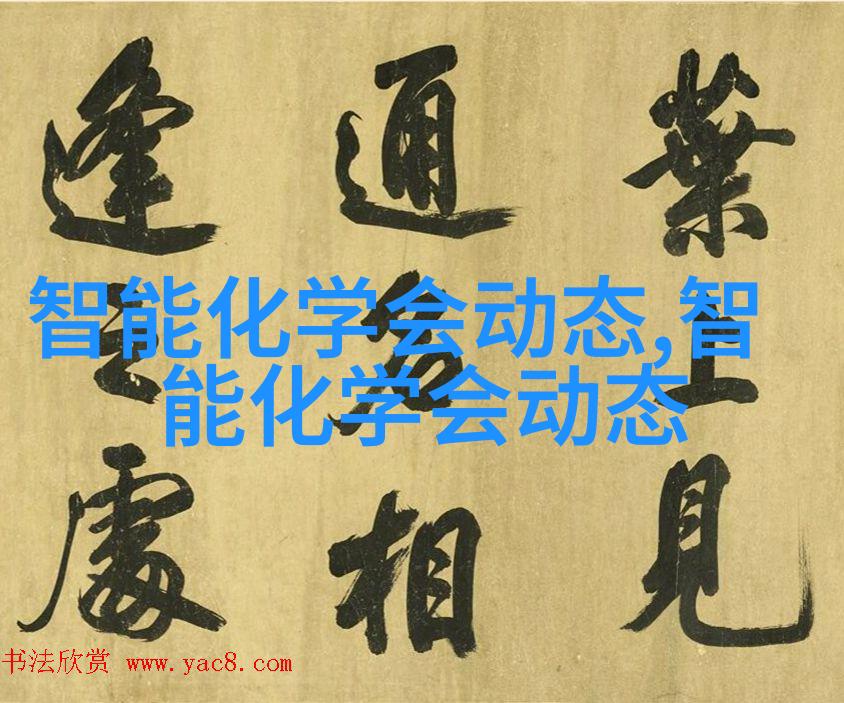 葉上見
通名相
逢之處
智能化学会动态,智
能化学会动态
书法欣赏 www.yac8.com